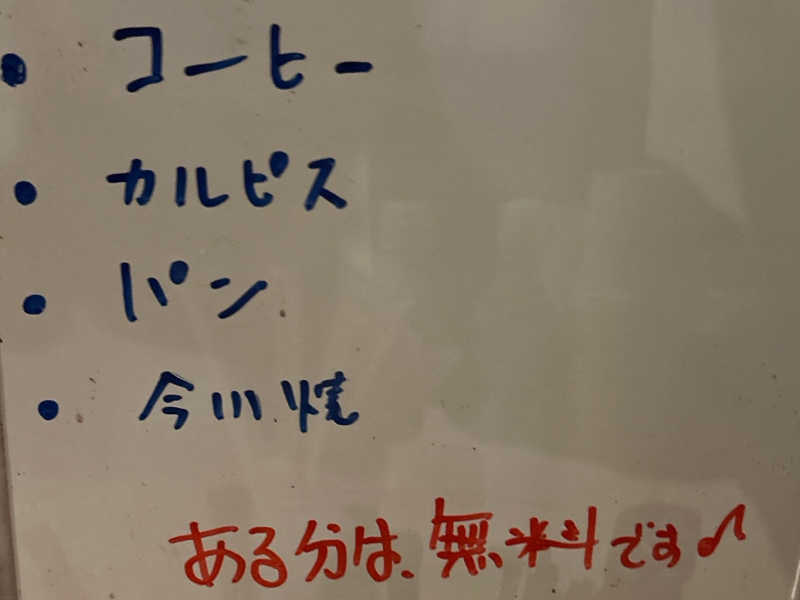 ・コーヒー
・カルピス
・パン
・今川焼
ある分は、無料です♪